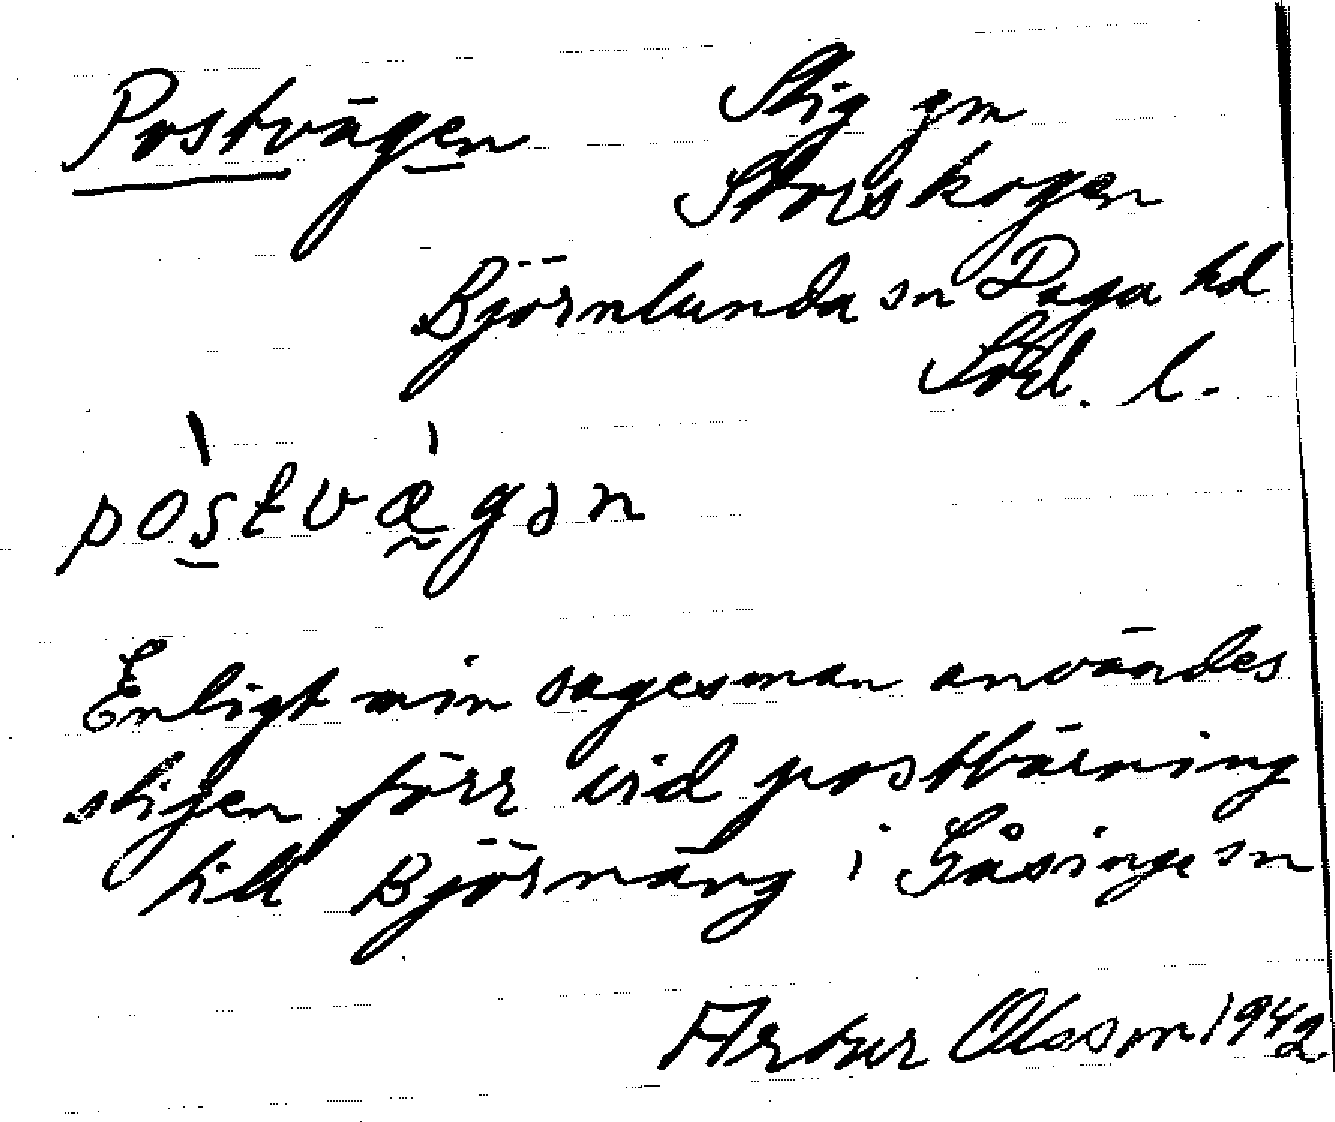 Postvägen
Stig gm
Storskogen
Björnlunda sn Daga hd
Söd. l.
pòstvæ̀gən
Enligt min sagesman användes
stigen förr vid postbärning
till Björnäng i Gåsinge sn
Artur Olsson 1942